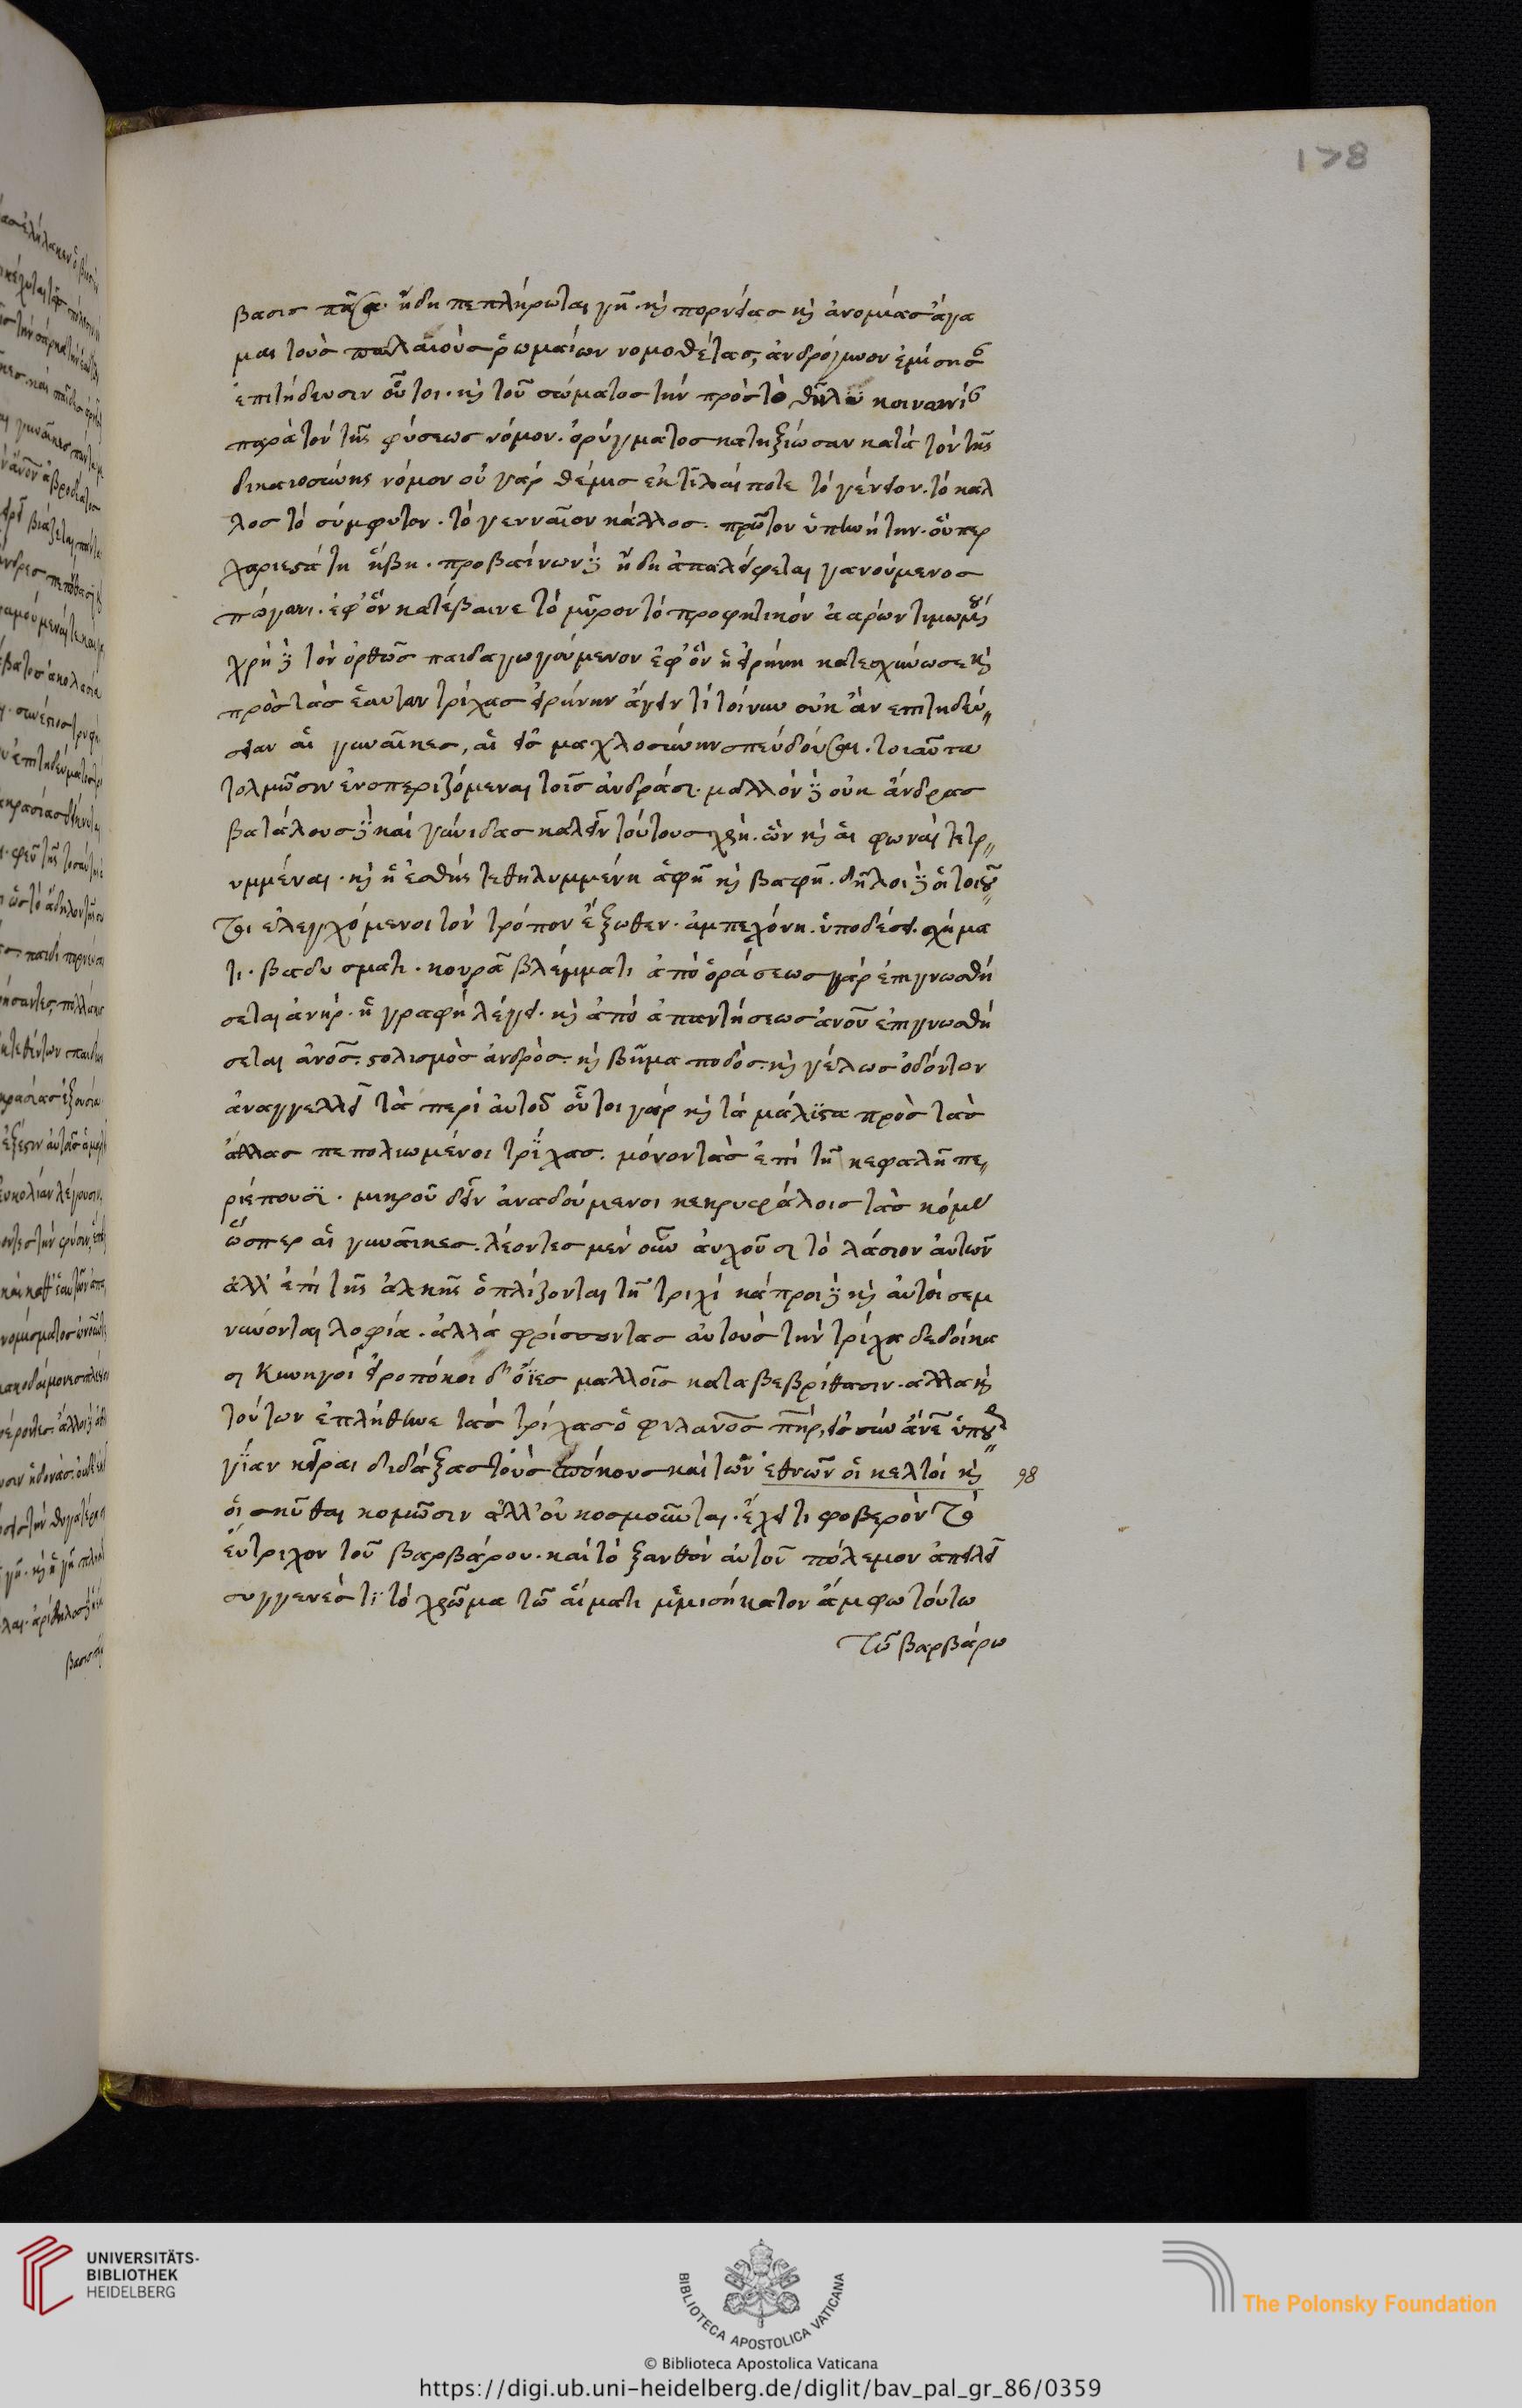 178
βασις πᾶσα. ἤδη πεπλήρωται γῆ. καὶ πορνείας καὶ ἀνομίας ἄγα
μαι τοὺς παλαιοὺς ῥωμαίων νομοθέτας, ἀνδρόγυνον ἐμίσησαν
ἐπιτήδευσιν οὗτοι. καὶ τοῦ σώματος τὴν πρὸς τὸ θῆλυ κοινωνίαν
παρὰ τὸν τῆς φύσεως νόμον. ὀρύγματος κατηξίωσαν κατὰ τὸν τῆς
δικαιοσύνης νόμον οὐ γὰρ θέμις ἐκτῖλαί ποτε τὸ γένειον. τὸ καλ
λος τὸ σύμφυτον. τὸ γενναῖον κάλλος. πρῶτον ὑπηνήτην. οὗπερ
χαριεστάτη ἥβη. προβαίνων δὲ ἤδη ἀπαλείφεται γανούμενος
πώγωνι. ἐφ' ὃν κατέβαινε τὸ μῦρον τὸ προφητικὸν ἀαρὼν τιμωμένου
χρὴ δὲ τὸν ὀρθῶς παιδαγωγούμενον ἐφ' ὃν ἡ εἰρήνη κατεσχήνωσε καὶ
πρὸς τὰς ἑαυτῶν τρίχας εἰρήνην ἄγειν τί τοίνυν οὐκ ἂν ἐπιτηδεύ〃
σειαν αἱ γυναῖκες, αἱ εἰς μαχλοσύνην σπεύδουσαι. τοιαῦτα
τολμῶσιν ἐνοπτριζόμεναι τοῖς ἀνδράσι. μᾶλλον δὲ οὐκ ἄνδρας
βατάλους δὲ καὶ γύνιδας καλεῖν τούτους χρή. ὧν καὶ αἱ φωναὶ τετρ〃
υμμέναι. καὶ ἡ ἐσθὴς τεθηλυμμένη ἁφῇ καὶ βαφῇ. δῆλοι δὲ οἱ τοιοῦ〃
τοι ἐλεγχόμενοι τὸν τρόπον ἔξωθεν. ἀμπεχόνη. ὑποδέσει. σχήμα
τι. βαδυσματι. κουρᾶ βλέμματι ἀπὸ ὁράσεως γὰρ ἐπιγνωσθή
σεται ἀνήρ. ἡ γραφὴ λέγει. καὶ ἀπὸ ἀπαντήσεως ἀνοῦ ἐπιγνωσθή
σεται ἀνος. στολισμὸς ἀνδρὸς. καὶ βῆμα ποδὸς. καὶ γέλως ὀδόντων
ἀναγγελλεῖ τὰ περὶ αὐτοῦ οὗτοι γὰρ καὶ τὰ μάλιστα πρὸς τὰς
ἄλλας πεπολιωμένοι τρίχας. μόνον τὰς ἐπὶ τῇ κεφαλῇ πε〃
ριέπουσι. μικροῦ δεῖν ἀναδούμενοι κεκρυφάλοις τὰς κόμας
ὥσπερ αἱ γυναῖκες. λέοντες μὲν οὖν αὐχοῦσι τὸ λάσιον αὐτῶν
ἀλλ' ἐπὶ τῆς ἀλκῆς ὁπλίζονται τῇ τριχί κάπροι δὲ καὶ αὐτοὶ σεμ
νύνονται λοφία. ἀλλὰ φρίσσοντας αὐτοὺς τὴν τρίχα δεδοίκα
σι Κυνηγοὶ εἰροπόκοι δ' ὄϊες μαλλοῖς καταβεβρίθασιν. ἀλλα καὶ
τούτων ἐπλήθυνε τὰς τρίχας ὁ φιλάνος πηρ, εἰς σὴν ἄνε ὑπουρ〃
γίαν κείραι διδάξας τοὺς πόκους καὶ τῶν ἐθνῶν οἱ κελτοὶ καὶ 98
οἱ σκῦθαι κομῶσιν ἀλλ' οὐ κοσμοῦνται. ἔχει τι φοβερὸν τὸ
εὔτριχον τοῦ βαρβάρου. καὶ τὸ ξανθὸν αὐτοῦ πόλεμον ἀπειλεῖ
συγγενές τι τὸ χρῶμα τῶ αἵματι μεμισήκατον ἄμφω τούτω
τῶ βαρβάρω
UNIVERSITÄTS-
BIBLIOTHEK
HEIDELBERG
BIBLIOTECA APOSTOLICA VATICANA
The Polonsky Foundation
© Biblioteca Apostolica Vaticana
https://digi.ub.uni-heidelberg.de/diglit/bav_pal_gr_86/0359